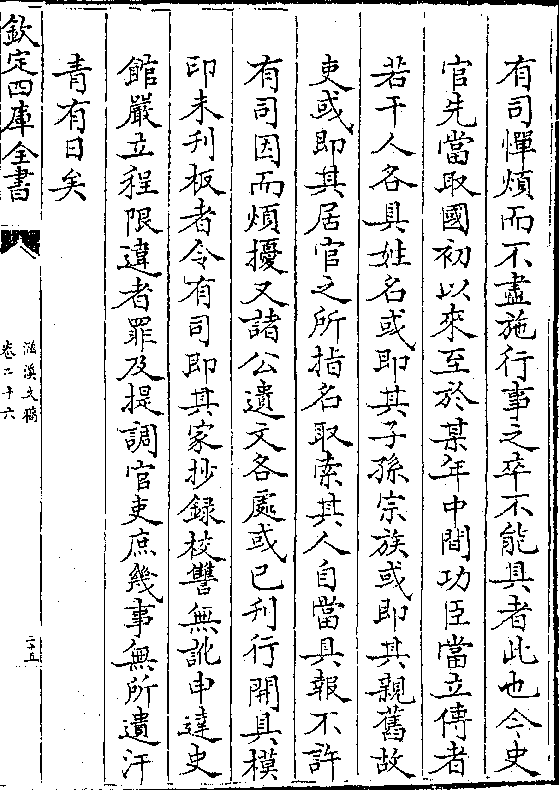 有司憚煩而不盡施行事之卒不能具者此也今史
官先當取國初以來至於某年中間功臣當立傳者
若干人各具姓名或即其子孫宗族或即其親舊故
吏或即其居官之所指名取索其人自當具報不許
有司因而煩擾又諸公遺文各處或已刋行開具模
印未刋板者令有司即其家抄録校讐無訛申達史
館嚴立程限違者罪及提調官吏庶幾事無所遺汗
青有日矣
欽定四庫全書
滋溪文稿
卷二十六
二十五